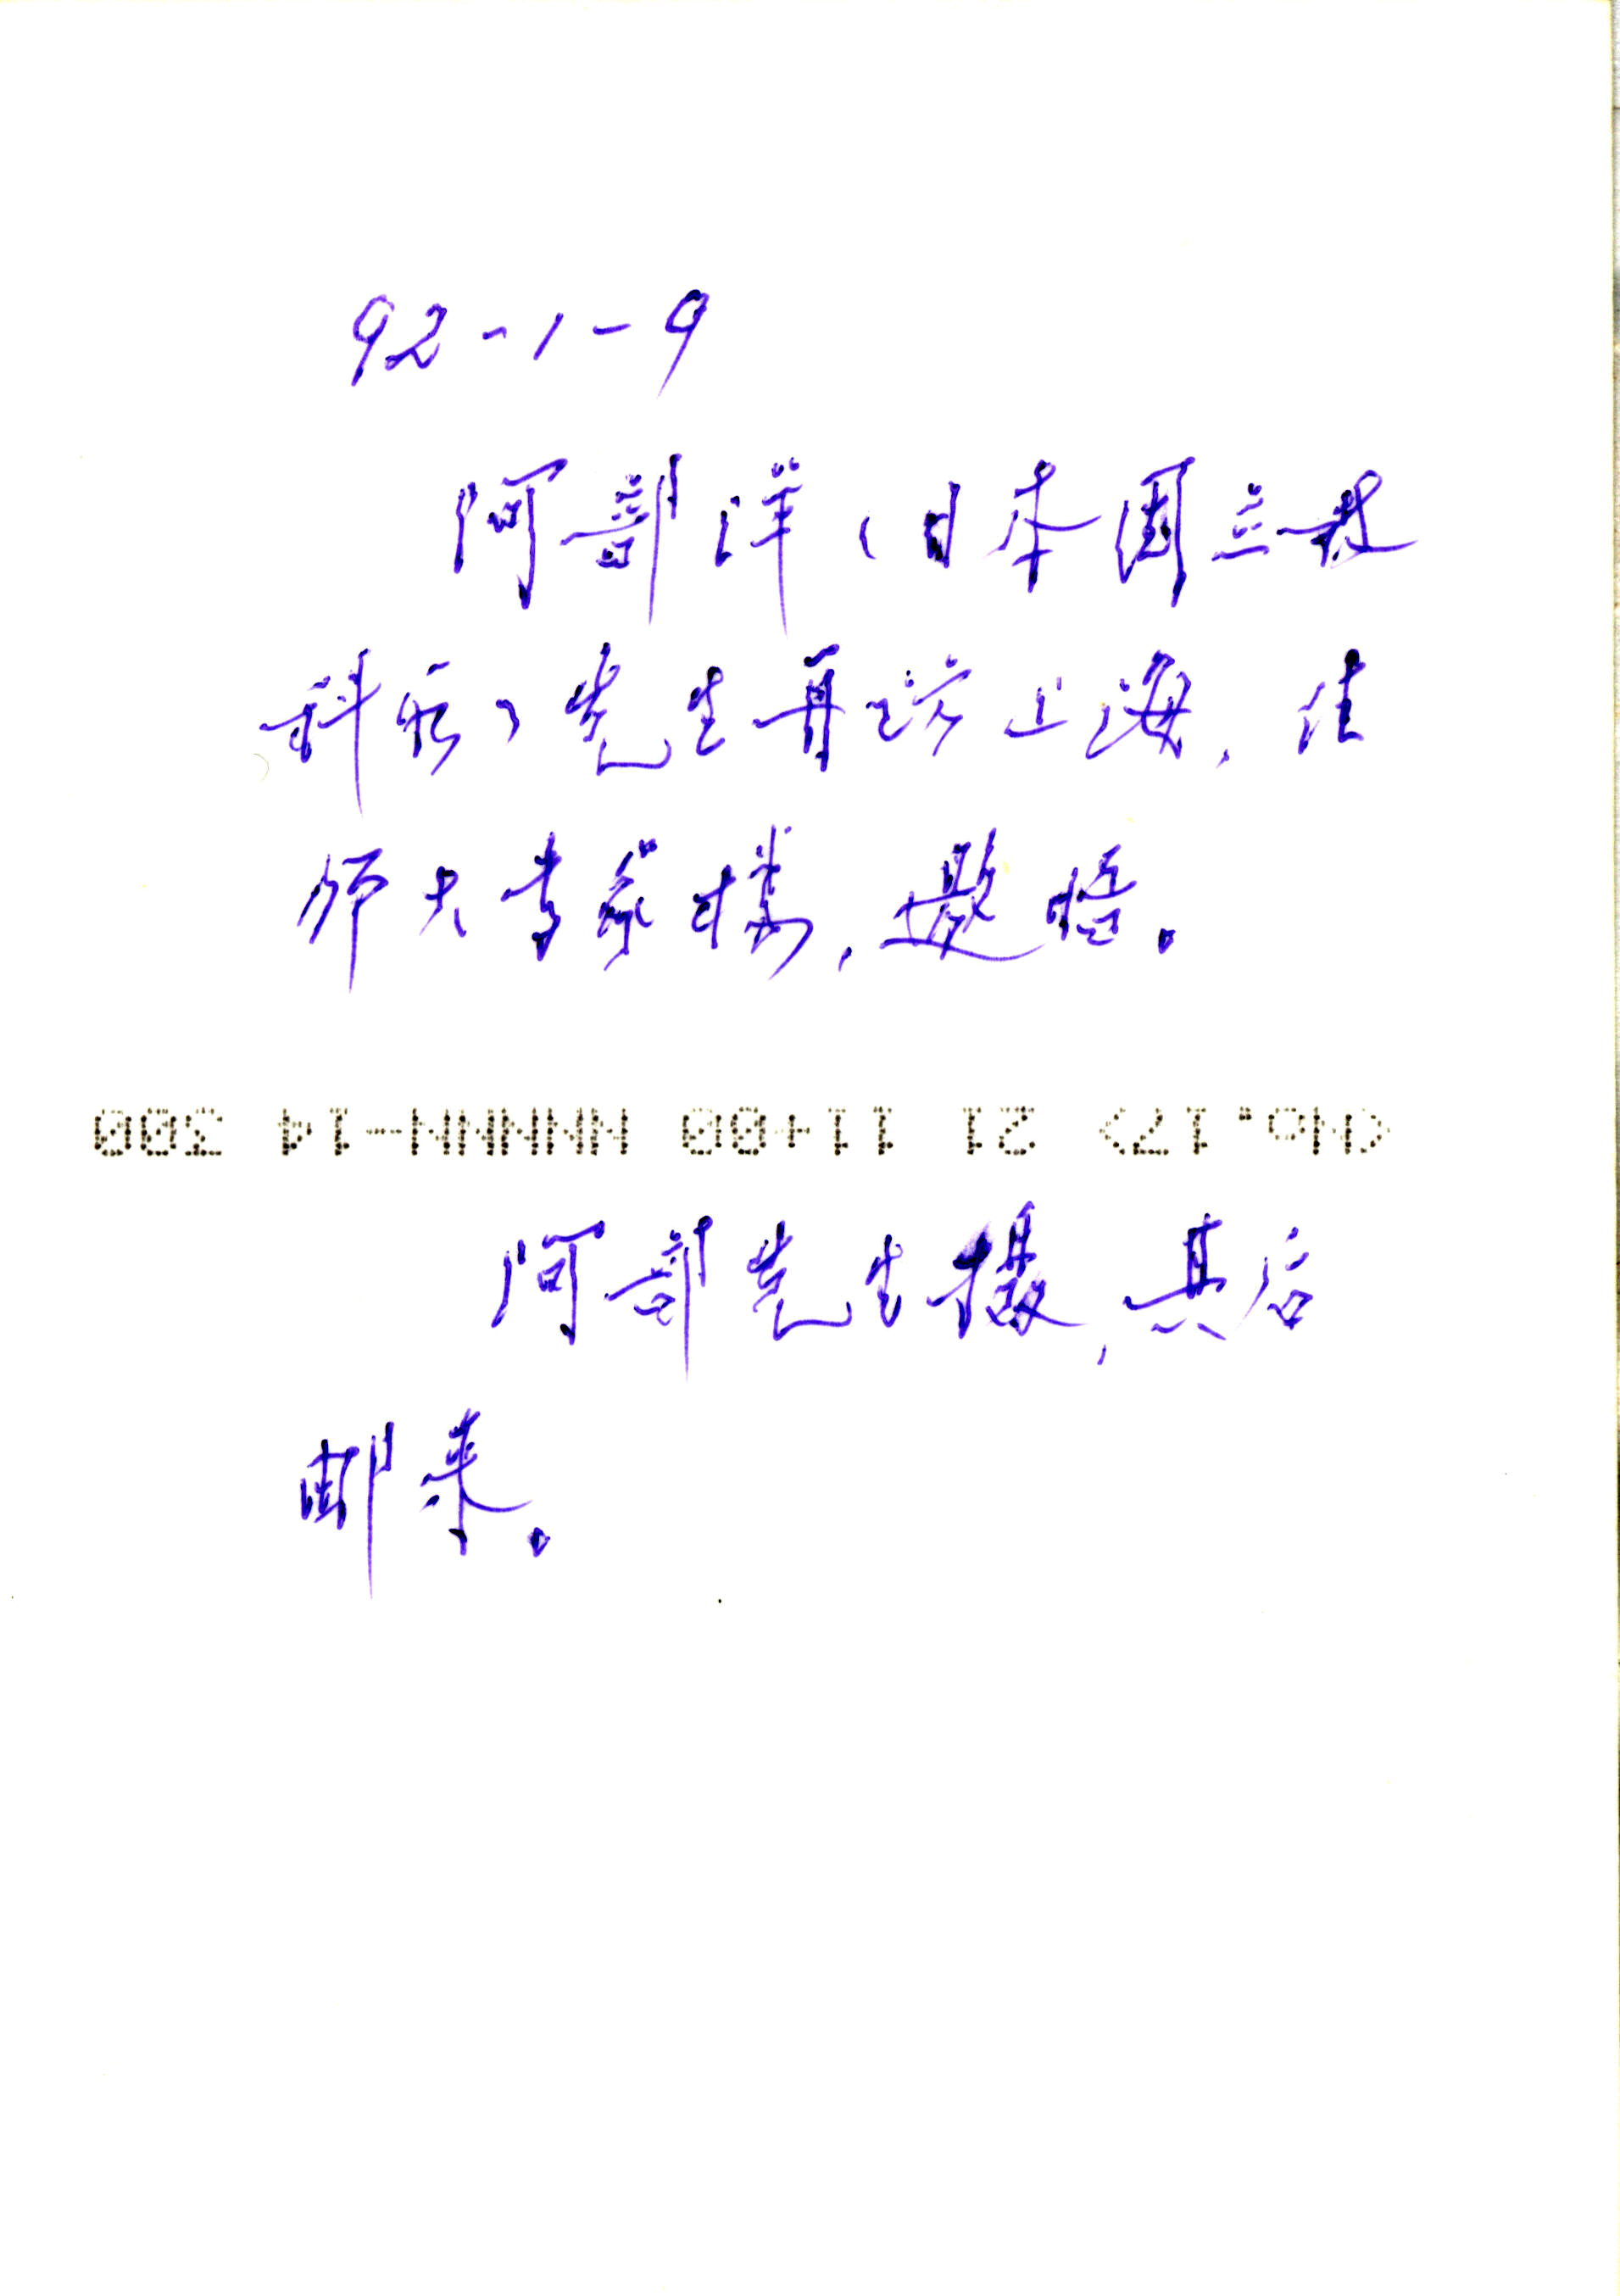 92-1-9
阿部洋(日本国立教
科所)先生再访上海,住
师大专家楼,邀晤。
<No.17> 11+00 NNNNN-14
阿部先生摄,其后
邮来。